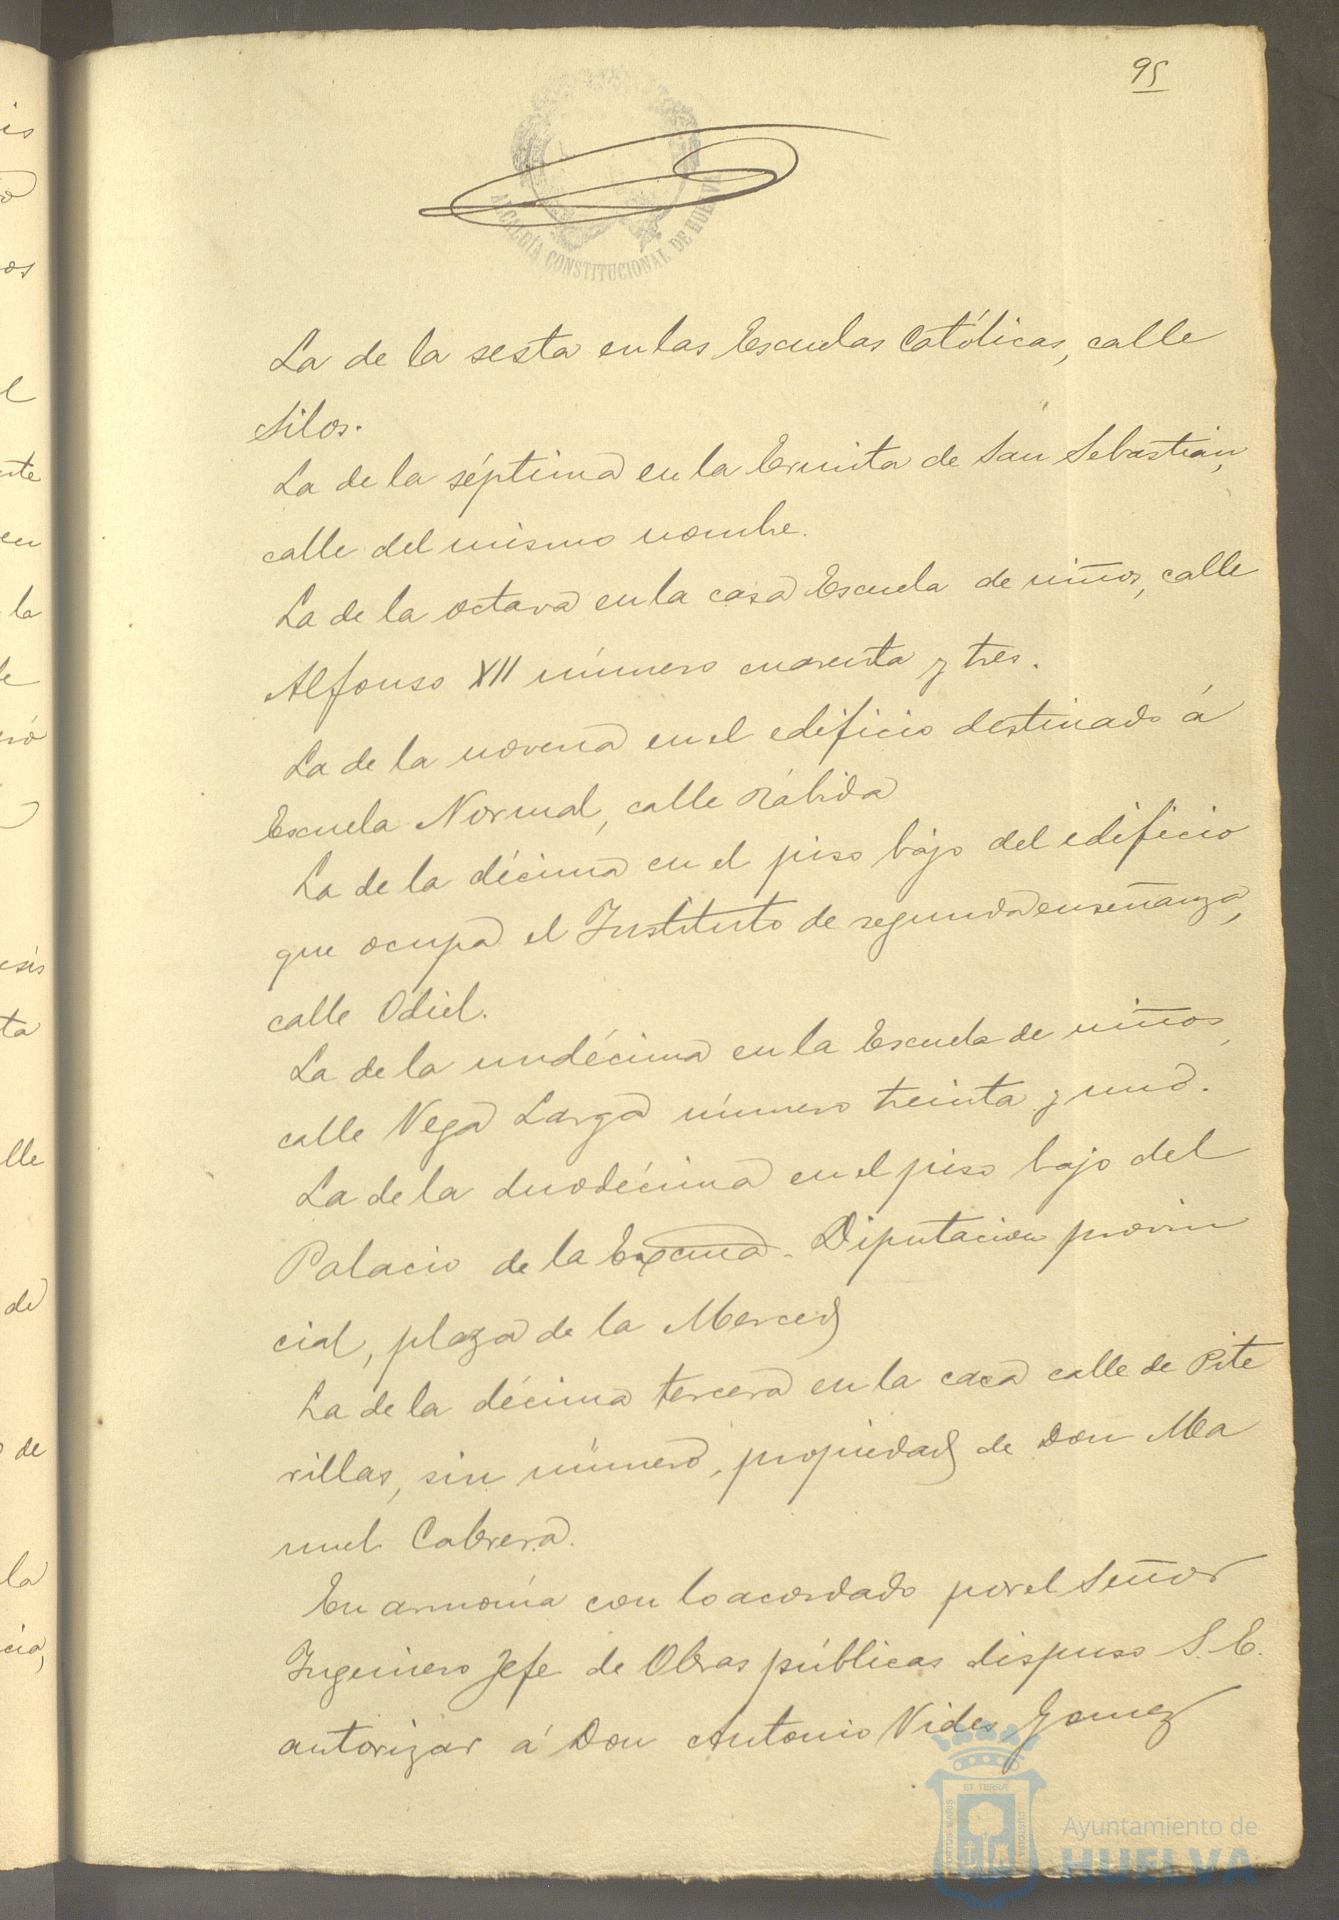 95
ALCALDÍA CONSTITUCIONAL DE HUELVA
La de la sesta en las Escuelas Católicas, calle
Silos.
La de la séptima en la Ermita de San Sebastián,
calle del mismo nombre.
La de la octava en la casa Escuela de niños, calle
Alfonso XII número cuarenta y tres.
La de la novena en el edificio destinado á
Escuela Normal, calle Rábida
La de la décima en el piso bajo del edificio
que ocupa el Instituto de segunda enseñanza,
calle Odiel.
La de la undécima en la Escuela de niños,
calle Vega Larga número treinta y uno.
La de la duodécima en el piso bajo del
Palacio de la Excma. Diputacion provin
cial, plaza de la Merced
La de la décima tercera en la casa calle de Pite
rillas, sin número, propiedad de Don Ma
nuel Cabrera.
En armonía con lo acordado por el Señor
Ingeniero Jefe de Obras públicas dispuso S. E.
autorizar á Don Antonio Vides Gomez
Ayuntamiento de
HUELVA